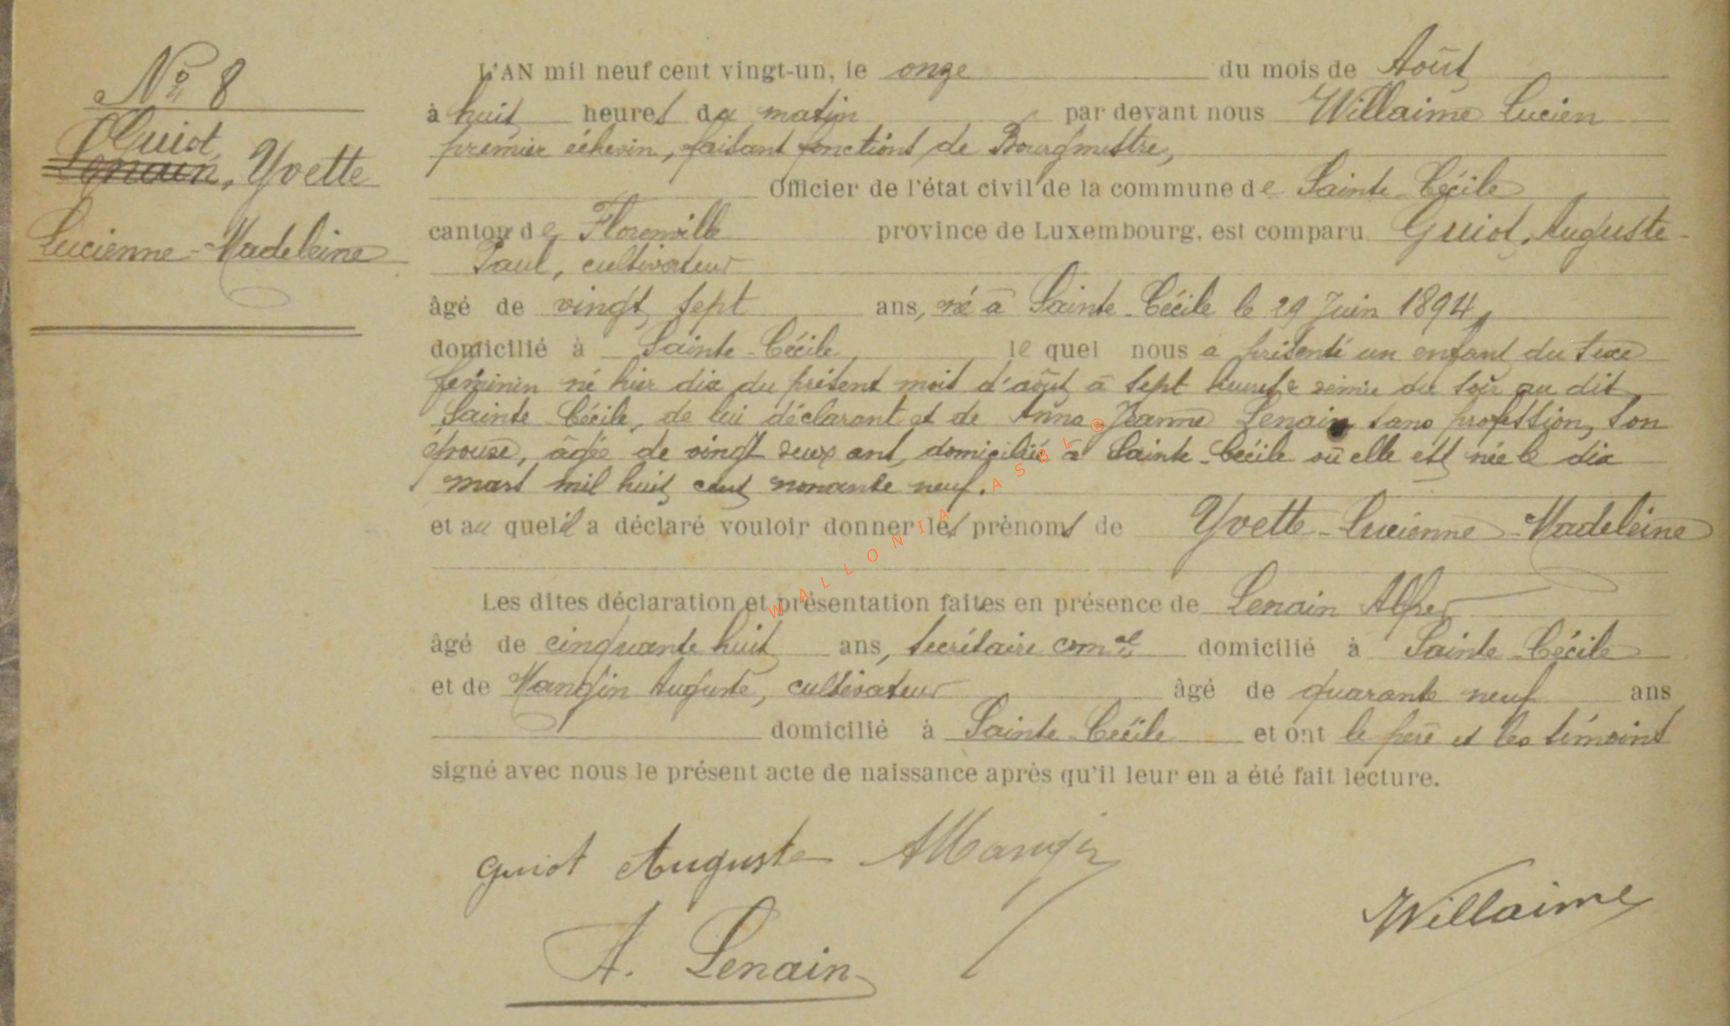 N° 8
Guiot
Lenain, Yvette
Lucienne-Madeleine
L'AN mil neuf cent vingt-un, le onze du mois de Août
à huit heures du matin par devant nous Willaime Lucien
premier échevin, faisant fonctions de Bourgmestre,
Officier de l'état civil de la commune de Sainte-Cécile
canton de Florenville province de Luxembourg, est comparu Guiot, Auguste-
Paul, cultivateur
âgé de vingt sept ans, né à Sainte-Cécile le 29 Juin 1894,
domicilié à Sainte-Cécile, lequel nous a présenté un enfant du sexe
féminin né hier dix du présent mois d'août à sept heures & demie du soir au dit
Sainte Cécile, de lui déclarant et de Anna Jeanne Lenain sans profession, son
épouse, âgée de vingt deux ans, domiciliée à Sainte-Cécile où elle est née le dix
mars mil huit cent nonante neuf.
et au quel il a déclaré vouloir donner les prénoms de Yvette-Lucienne-Madeleine
Les dites déclaration et présentation faites en présence de Lenain Alfred
âgé de cinquante huit ans, secrétaire comal domicilié à Sainte-Cécile
et de Mangin Auguste, cultivateur âgé de quarante neuf ans
domicilié à Sainte-Cécile et ont le père et les témoins
signé avec nous le présent acte de naissance après qu'il leur en a été fait lecture.
Guiot Auguste AMangin
Willaime
A. Lenain
WALLONIA ASBL ©